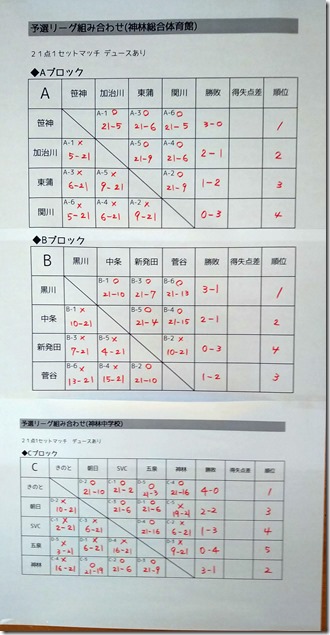 予選リーグ組み合わせ(神林総合体育館)
21点1セットマッチ デュースあり
◆Aブロック
A 笹神 加治川 東蒲 関川 勝敗 得失点差 順位
笹神 A-1 ○ 21-5 A-3 ○ 21-6 A-6 ○ 21-5 3-0 1
加治川 A-1 × 5-21 A-5 ○ 21-9 A-4 ○ 21-6 2-1 2
東蒲 A-3 × 6-21 A-5 × 9-21 A-2 ○ 21-9 1-2 3
関川 A-6 × 5-21 A-4 × 6-21 A-2 × 9-21 0-3 4
◆Bブロック
B 黒川 中条 新発田 菅谷 勝敗 得失点差 順位
黒川 B-1 ○ 21-10 B-3 ○ 21-7 B-6 ○ 21-13 3-1 1
中条 B-1 × 10-21 B-5 ○ 21-4 B-4 ○ 21-15 2-1 2
新発田 B-3 × 7-21 B-5 × 4-21 B-2 × 10-21 0-3 4
菅谷 B-6 × 13-21 B-4 × 15-21 B-2 ○ 21-10 1-2 3
予選リーグ組み合わせ(神林中学校)
21点1セットマッチ デュースあり
◆Cブロック
C きのと 朝日 SVC 五泉 神林 勝敗 得失点差 順位
きのと ○ 21-10 ○ 21-2 ○ 21-3 ○ 21-16 4-0 1
朝日 × 10-21 ○ 21-6 ○ 21-6 × 19-21 2-2 3
SVC × 2-21 × 6-21 ○ 21-16 × 6-21 1-3 4
五泉 × 3-21 × 6-21 × 16-21 × 9-21 0-4 5
神林 × 16-21 ○ 21-19 ○ 21-6 ○ 21-9 3-1 2